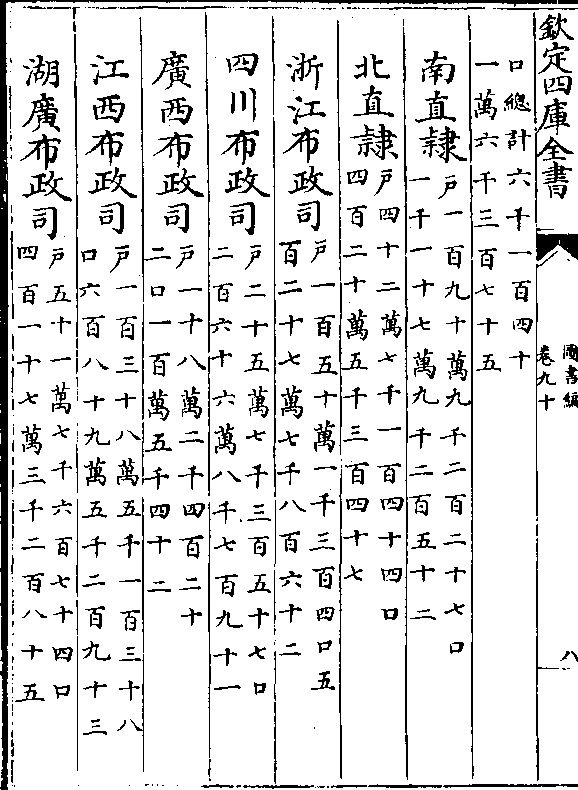 欽定四庫全書
圖書編
卷九十
八
口總計六千一百四十
一萬六千三百七十五
南直隸
戸一百九十萬九千二百二十七口
一千一十七萬九千二百五十二
北直隸
戸四十二萬七千一百四十四口
四百二十萬五千三百四十七
浙江布政司
戸一百五十萬一千三百四口五
百二十七萬七千八百六十二
四川布政司
戸二十五萬七千三百五十七口
二百六十六萬八千七百九十一
廣西布政司
戸一十八萬二千四百二十
二口一百萬五千四十二
江西布政司
戸一百三十八萬五千一百三十八
口六百八十九萬五千二百九十三
湖廣布政司
戸五十一萬七千六百七十四口
四百一十七萬三千二百八十五